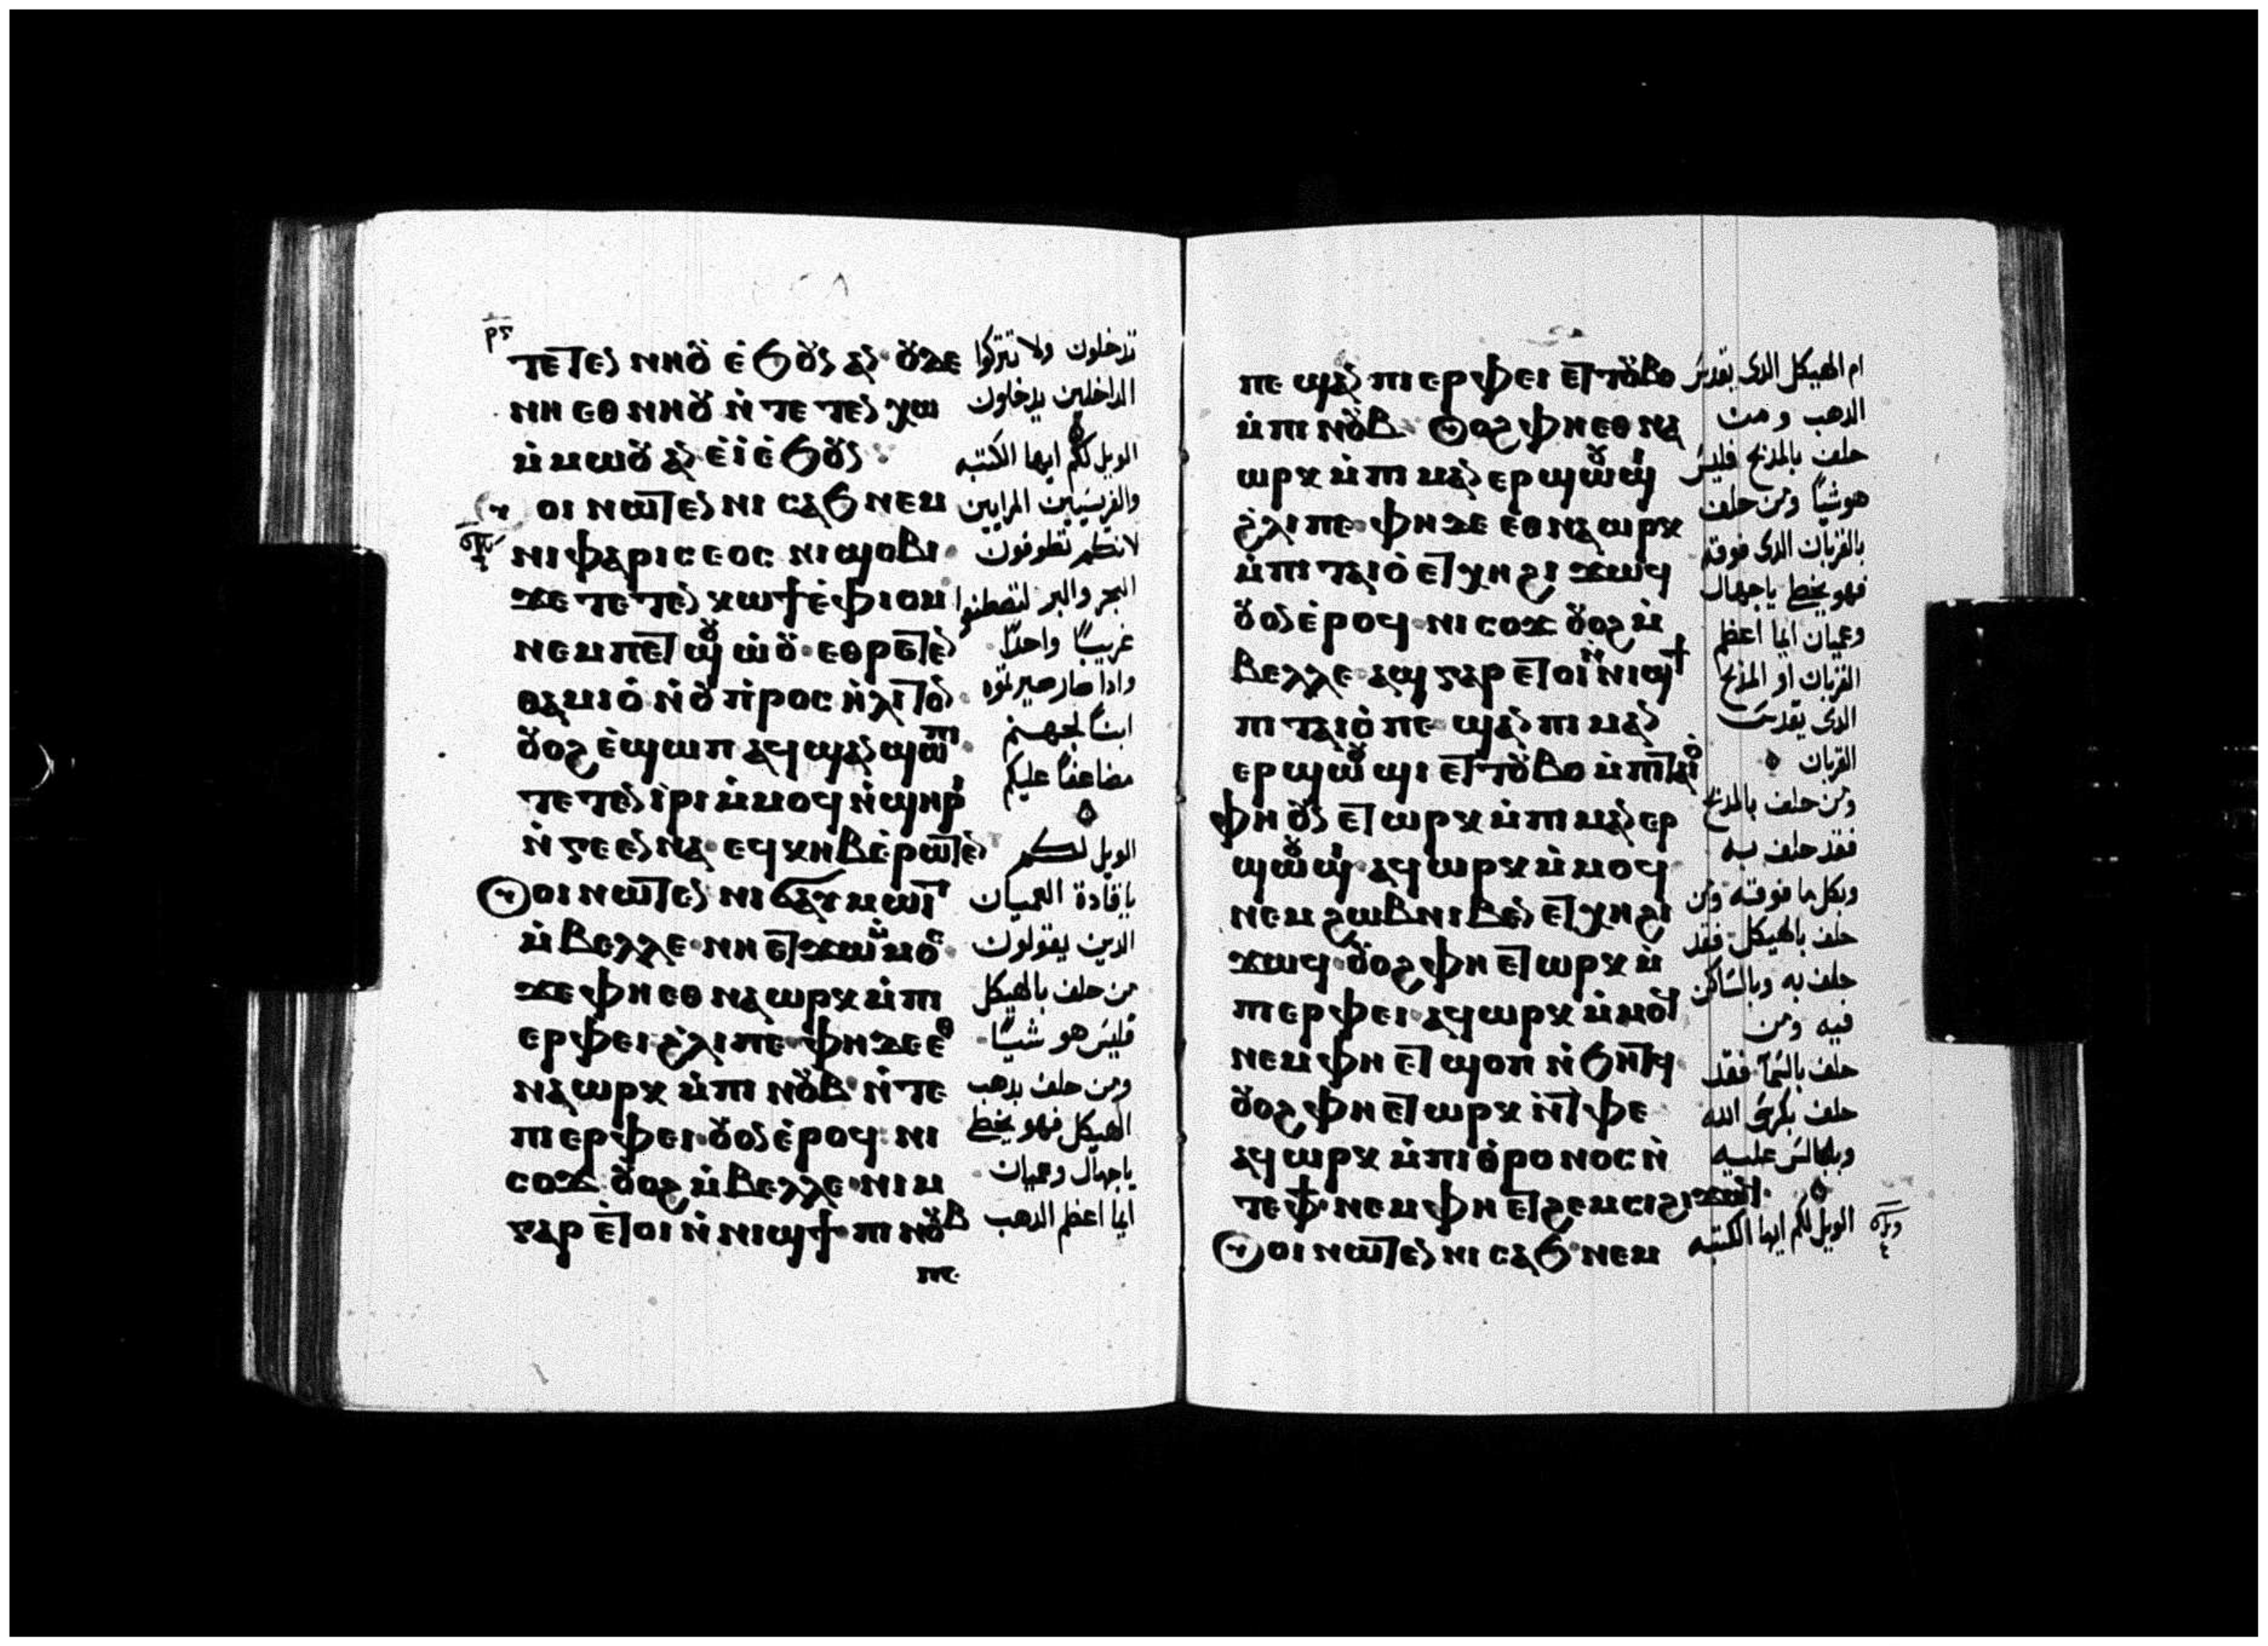 ⲣ̅ⲋ̅
ⲧⲉⲧⲉⲛ ⲛⲏⲟⲩ ⲉ̀ϧⲟⲩⲛ ⲁⲛ· ⲟⲩⲇⲉ
ⲛⲏ ⲉⲑⲛⲏⲟⲩ ⲛ̀ⲧⲉⲧⲉⲛⲭⲱ
ⲙ̀ⲙⲱⲟⲩ ⲁⲛ ⲉ̀ⲓ̀ ⲉ̀ϧⲟⲩⲛ
ⲟⲩⲟⲓ ⲛⲱⲧⲉⲛ ⲛⲓⲥⲁϧ ⲛⲉⲙ
ⲛⲓⲫⲁⲣⲓⲥⲉⲟⲥ ⲛⲓϣⲟⲃⲓ·
ϫⲉ ⲧⲉⲧⲉⲛⲕⲱϯ ⲉ̀ⲫⲓⲟⲙ
ⲛⲉⲙ ⲡⲉⲧϣⲟⲩⲱ̀ⲟⲩ· ⲉⲑⲣⲉⲧⲉⲛ
ⲑⲁⲙⲓⲟ̀ ⲛ̀ⲟⲩⲡ̀ⲣⲟⲥⲏⲗⲓⲧⲟⲥ·
ⲟⲩⲟϩ ⲉ̀ϣⲱⲡ ⲁϥϣⲁⲛϣⲱⲡⲓ·
ⲧⲉⲧⲉⲛⲓ̀ⲣⲓ ⲙ̀ⲙⲟϥ ⲛ̀ϣⲏⲣⲓ
ⲛ̀ⲅⲉⲉⲛⲛⲁ· ⲉϥⲕⲏⲃ ⲉ̀ⲣⲱⲧⲉⲛ
ⲟⲩⲟⲓ ⲛⲱⲧⲉⲛ ⲛⲓϭⲁⲩⲙⲱⲓⲧ
ⲙ̀ⲃⲉⲗⲗⲉ· ⲛⲏ ⲉⲧϫⲱ ⲙ̀ⲙⲟⲥ·
ϫⲉ ⲫⲏ ⲉⲑⲛⲁⲱⲣⲕ ⲙ̀ⲡⲓ
ⲉⲣⲫⲉⲓ ϩ̀ⲗⲓ ⲡⲉ· ⲫⲏ ⲇⲉ ⲉⲑ
ⲛⲁⲱⲣⲕ ⲙ̀ⲡⲓⲛⲟⲩⲃ ⲛ̀ⲧⲉ
ⲡⲓⲉⲣⲫⲉⲓ· ⲟⲩⲟⲛ ⲉ̀ⲣⲟϥ· ⲛⲓ
ⲥⲟϫ ⲟⲩⲟϩ ⲙ̀ⲃⲉⲗⲗⲉ· ⲛⲓⲙ
ⲅⲁⲣ ⲉⲧⲟⲓ ⲛ̀ⲛⲓϣϯ· ⲡⲓⲛⲟⲩⲃ
ⲡⲉ·
تدخلون ولا تتركوا
الداخلين يدخلون
الويل لكم ايها الكتبه
والفريسيين المرايين
لانكم تطوفون
البحر والبر لتصطنعوا
غريبًا واحدًا
واذا صار صيرتموه
ابنًا لجهنم
مضاعفًا عليكم
الويل لكم
ياقادة العميان
الدين يقولون
من حلف بالهيكل
فليس هو شيًا
ومن حلف بدهب
الهيكل فهو يخطى
ياجهال وعميان
ايما اعظم الدهب
ⲡⲉ ϣⲁⲛ ⲡⲓⲉⲣⲫⲉⲓ ⲉⲧⲧⲟⲩⲃⲟ
ⲙ̀ⲡⲓⲛⲟⲩⲃ· ⲟⲩⲟϩ ⲫⲏ ⲉⲑⲛⲁ
ⲱⲣⲕ ⲙ̀ⲡⲓⲙⲁⲛⲉⲣϣⲱⲟⲩϣⲓ
ϩ̀ⲗⲓ ⲡⲉ· ⲫⲏ ⲇⲉ ⲉⲑⲛⲁⲱⲣⲕ
ⲙ̀ⲡⲓⲧⲁⲓⲟ̀ ⲉⲧⲭⲏ ϩⲓϫⲱϥ
ⲟⲩⲟⲛ ⲉ̀ⲣⲟϥ· ⲛⲓⲥⲟϫ ⲟⲩⲟϩ ⲙ̀
ⲃⲉⲗⲗⲉ· ⲁϣ ⲅⲁⲣ ⲉⲧⲟⲓ ⲛ̀ⲛⲓϣϯ
ⲡⲓⲧⲁⲓⲟ̀ ⲡⲉ· ϣⲁⲛ ⲡⲓⲙⲁⲛ
ⲉⲣϣⲱⲟⲩϣⲓ ⲉⲧⲧⲟⲩⲃⲟ ⲙ̀ⲡⲓⲧⲁⲓⲟ̀
ⲫⲏ ⲟⲩⲛ ⲉⲧⲱⲣⲕ ⲙ̀ⲡⲓⲙⲁⲛⲉⲣ
ϣⲱⲟⲩϣⲓ· ⲁϥⲱⲣⲕ ⲙ̀ⲙⲟϥ
ⲛⲉⲙ ϩⲱⲃ ⲛⲓⲃⲉⲛ ⲉⲧⲭⲏ ϩⲓ
ϫⲱϥ· ⲟⲩⲟϩ ⲫⲏ ⲉⲧⲱⲣⲕ ⲙ̀
ⲡⲉⲣⲫⲉⲓ· ⲁϥⲱⲣⲕ ⲙ̀ⲙⲟϥ
ⲛⲉⲙ ⲫⲏ ⲉⲧϣⲟⲡ ⲛ̀ϧⲏⲧϥ·
ⲟⲩⲟϩ ⲫⲏ ⲉⲧⲱⲣⲕ ⲛ̀ⲧⲫⲉ
ⲁϥⲱⲣⲕ ⲙ̀ⲡⲓⲑ̀ⲣⲟⲛⲟⲥ ⲛ̀
ⲧⲉ ⲫϯ· ⲛⲉⲙ ⲫⲏ ⲉⲧϩⲉⲙⲥⲓ ϩⲓϫⲱϥ·
ⲟⲩⲟⲓ ⲛⲱⲧⲉⲛ ⲛⲓⲥⲁϧ ⲛⲉⲙ
ام الهيكل الدى يقدس
الدهب ومن
حلف بالمذبح فليس
هو شيًا ومن حلف
بالقربان الدى فوقه
فهو يخطى ياجهال
وعميان ايما اعظم
القربان او المذبح
الدى يقدس
القربان
ومن حلف بالمذبح
فقد حلف به
وبكل ما فوقه ومن
حلف بالهيكل فقد
حلف به وبالساكن
فيه ومن
حلف بالسما فقد
حلف بكرسى الله
وبالجالس عليه
الويل لكم ايها الكتبه